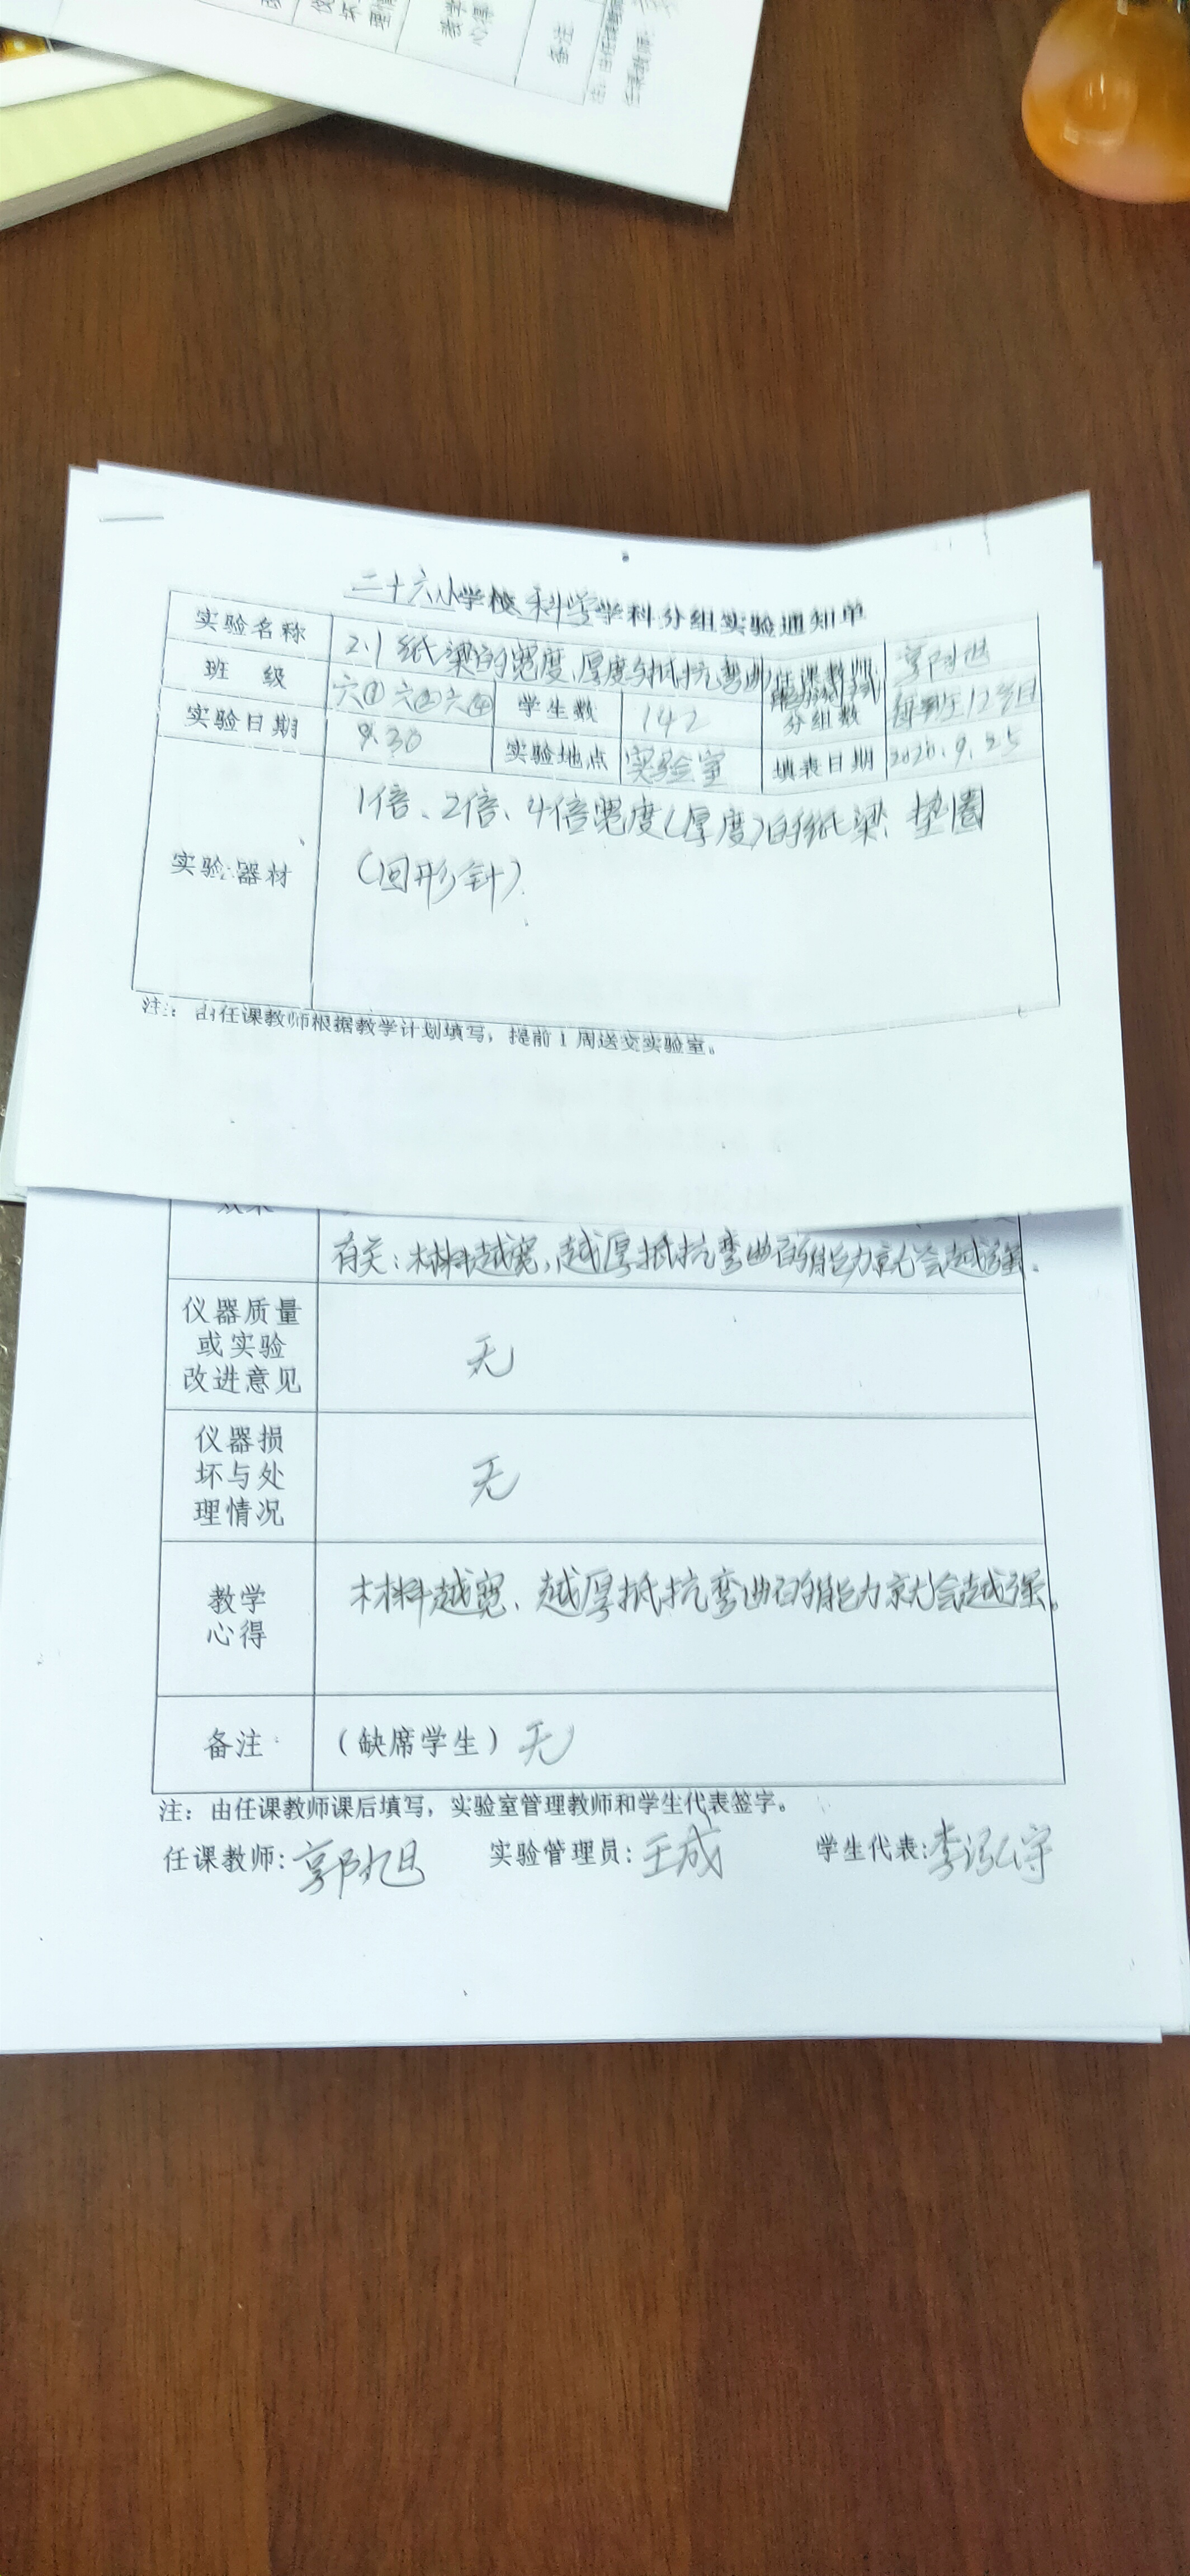 教学
心得
备注
二十六小学校科学学科分组实验通知单
实验名称 2.1纸梁的宽度、厚度与抵抗弯曲 任课教师 郭旭
班 级 六① 六② 六④ 学生数 142 分组数 每班12组
实验日期 9.30 实验地点 实验室 填表日期 2020.9.25
实验器材 1倍、2倍、4倍宽度(厚度)的纸梁、垫圈
(回形针).
注: 由任课教师根据教学计划填写,提前1周送交实验室。
效果
有关:材料越宽,越厚抵抗弯曲的能力就会越强.
仪器质量
或实验
改进意见
无
仪器损
坏与处
理情况
无
教学
心得
材料越宽、越厚抵抗弯曲的能力就会越强。
备注 (缺席学生) 无
注: 由任课教师课后填写,实验室管理教师和学生代表签字。
任课教师:郭旭 实验管理员:王成 学生代表:李泓守